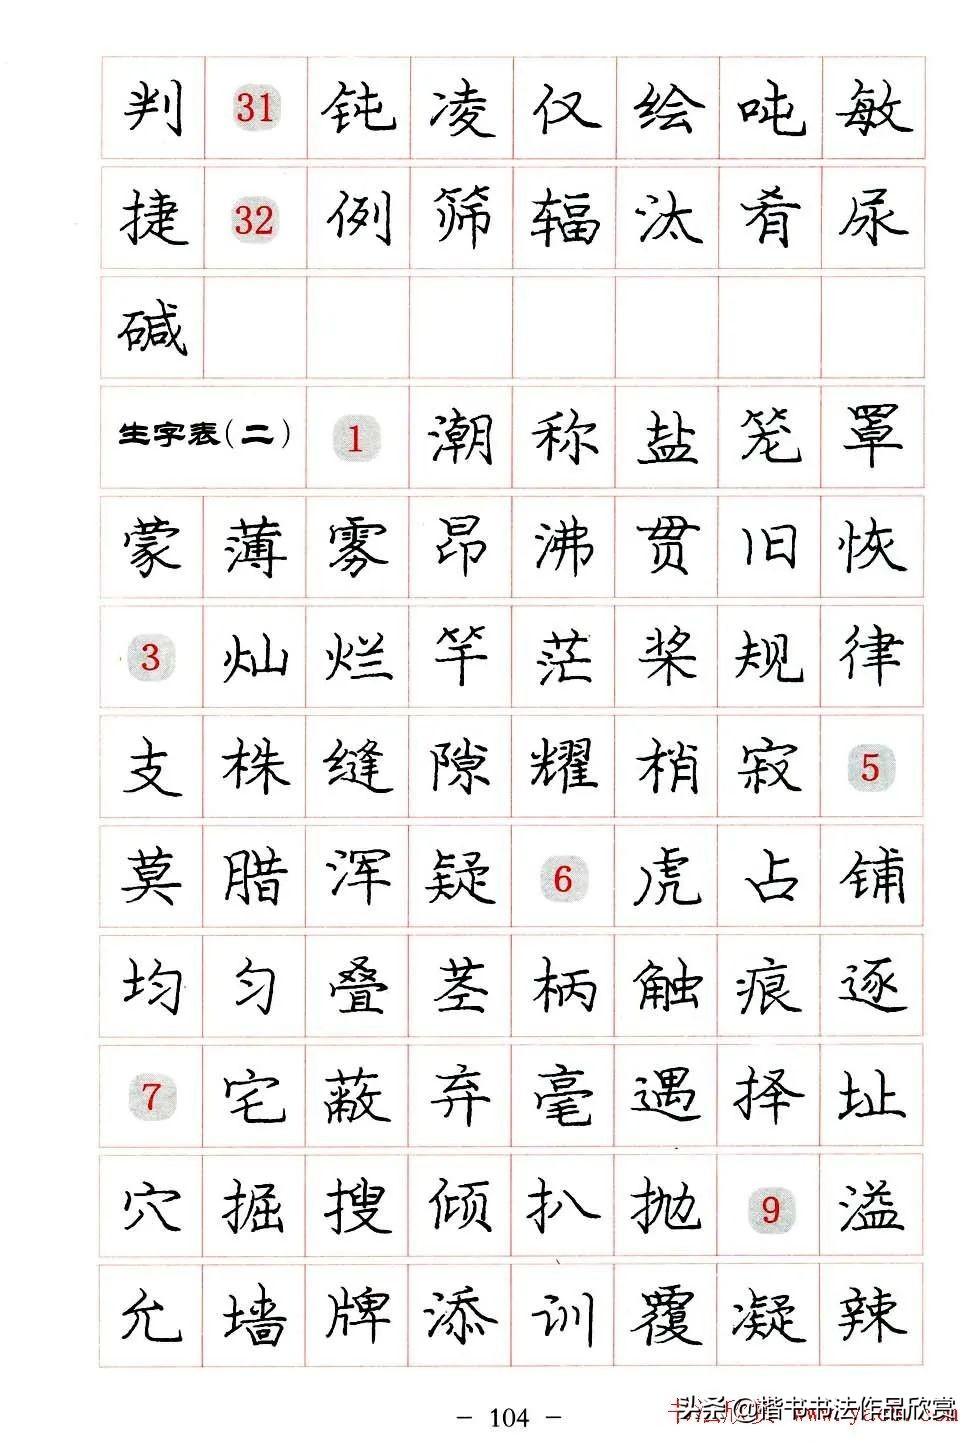 判 31 钝 凌 仅 绘 吨 敏
捷 32 例 筛 辐 汰 肴 尿
碱
生字表(二) 1 潮 称 盐 笼 罩
蒙 薄 雾 昂 沸 贯 旧 恢
3 灿 烂 竿 茫 桨 规 律
支 株 缝 隙 耀 梢 寂 5
莫 腊 浑 疑 6 虎 占 铺
均 匀 叠 茎 柄 触 痕 逐
7 宅 蔽 弃 毫 遇 择 址
穴 掘 搜 倾 扒 抛 9 溢
允 墙 牌 添 训 覆 凝 辣
- 104 -
头条@楷书书法作品欣赏